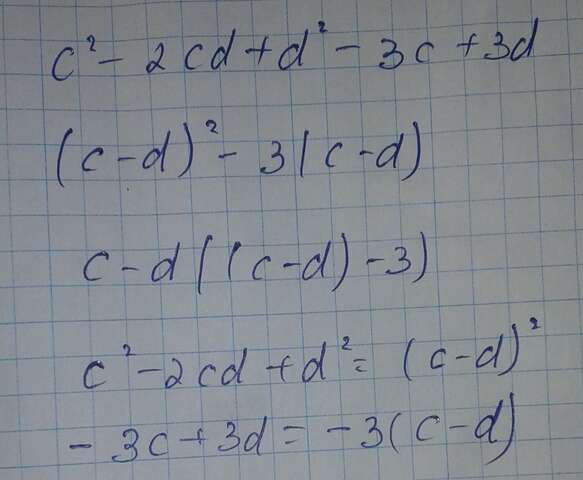 c² - 2cd + d² - 3c + 3d
(c - d)² - 3(c - d)
c - d((c - d) - 3)
c² - 2cd + d² = (c - d)²
- 3c + 3d = -3(c - d)